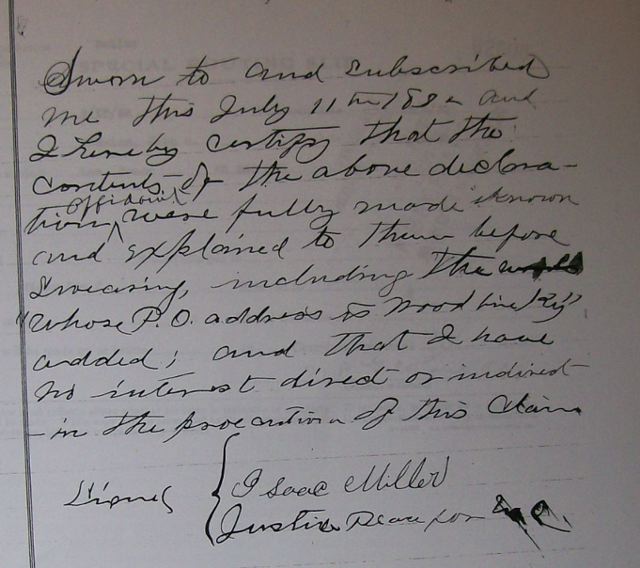 Sworn to and subscribed
me this July 11th 188 and
I hereby certify that the
contents of the above declara-
tion, Affidavit were fully made known
and explained to them before
swearing, including the
"whose P.O. address is Woodbine Ky"
added; and that I have
no interest direct or indirect
in the prosecution of this Claim
Signed { Isaac Miller
Justice Peace for